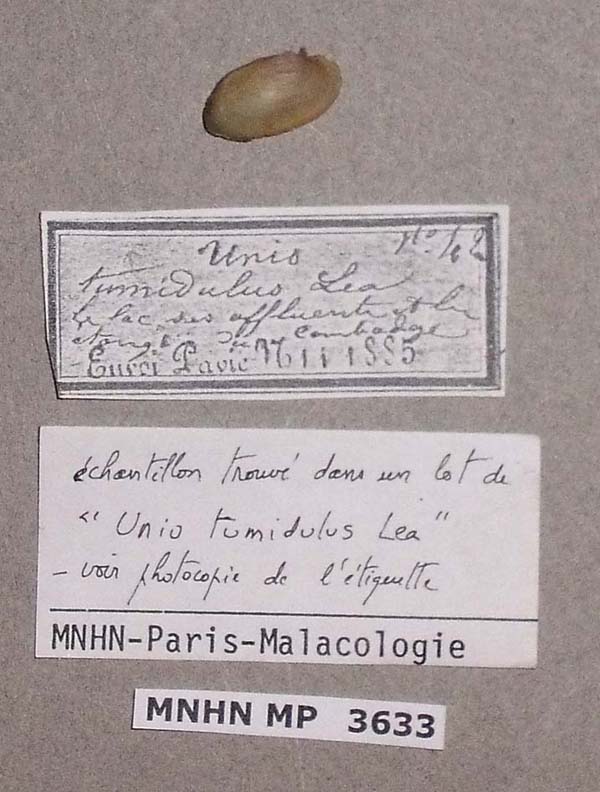 Unio No 42
tumidulus Lea
le lac, ses affluents et les
étangs du Cambodge
Pavie 1885
échantillon trouvé dans un lot de
“Unio tumidulus Lea”
- voir photocopie de l'étiquette
MNHN-Paris-Malacologie
MNHN MP 3633